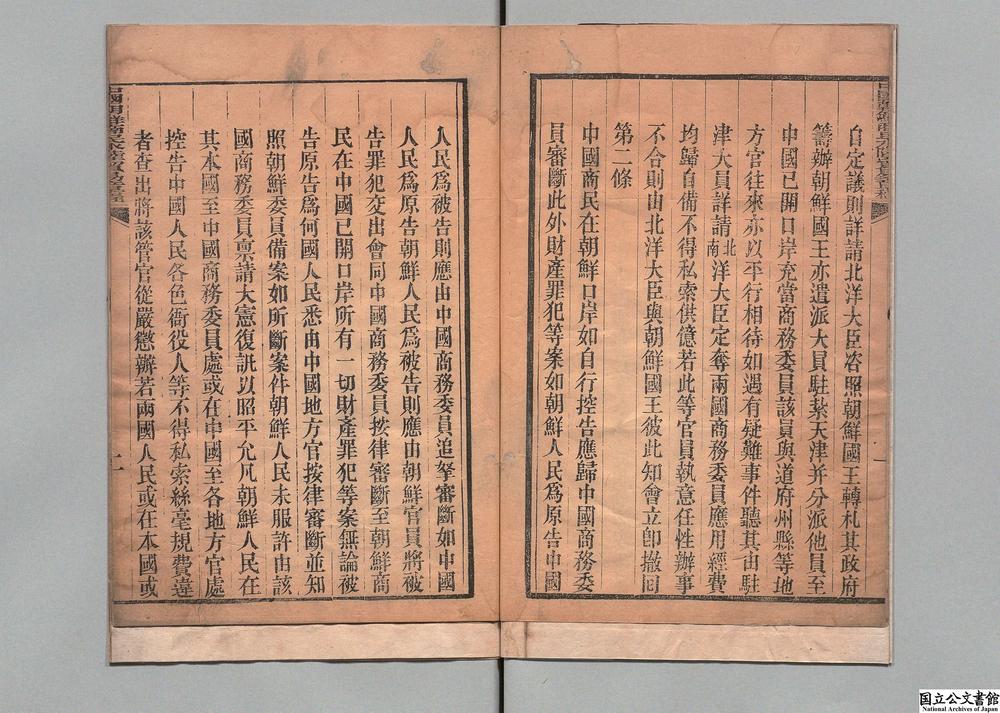 自定議則詳請北洋大臣咨照朝鮮國王轉札其政府
籌辦朝鮮國王亦遣派大員駐紮天津并分派他員至
中國已開口岸充當商務委員該員與道府州縣等地
方官往來亦以平行相待如遇有疑難事件聽其由駐
津大員詳請北南洋大臣定奪兩國商務委員應用經費
均歸自備不得私索供億若此等官員執意任性辦事
不合則由北洋大臣與朝鮮國王彼此知會立卽撤囘
第二條
中國商民在朝鮮口岸如自行控告應歸中國商務委
員審斷此外財產罪犯等案如朝鮮人民爲原告中國
一
人民爲被告則應由中國商務委員追拏審斷如中國
人民爲原告朝鮮人民爲被告則應由朝鮮官員將被
告罪犯交出會同中國商務委員按律審斷至朝鮮商
民在中國已開口岸所有一切財產罪犯等案無論被
告原告爲何國人民悉由中國地方官按律審斷並知
照朝鮮委員備案如所斷案件朝鮮人民未服許由該
國商務委員禀請大憲復訊以昭平允凡朝鮮人民在
其本國至中國商務委員處或在中國至各地方官處
控告中國人民各色衙役人等不得私索絲毫規費違
者查出將該管官從嚴懲辦若兩國人民或在本國或
二
国立公文書館
National Archives of Japan